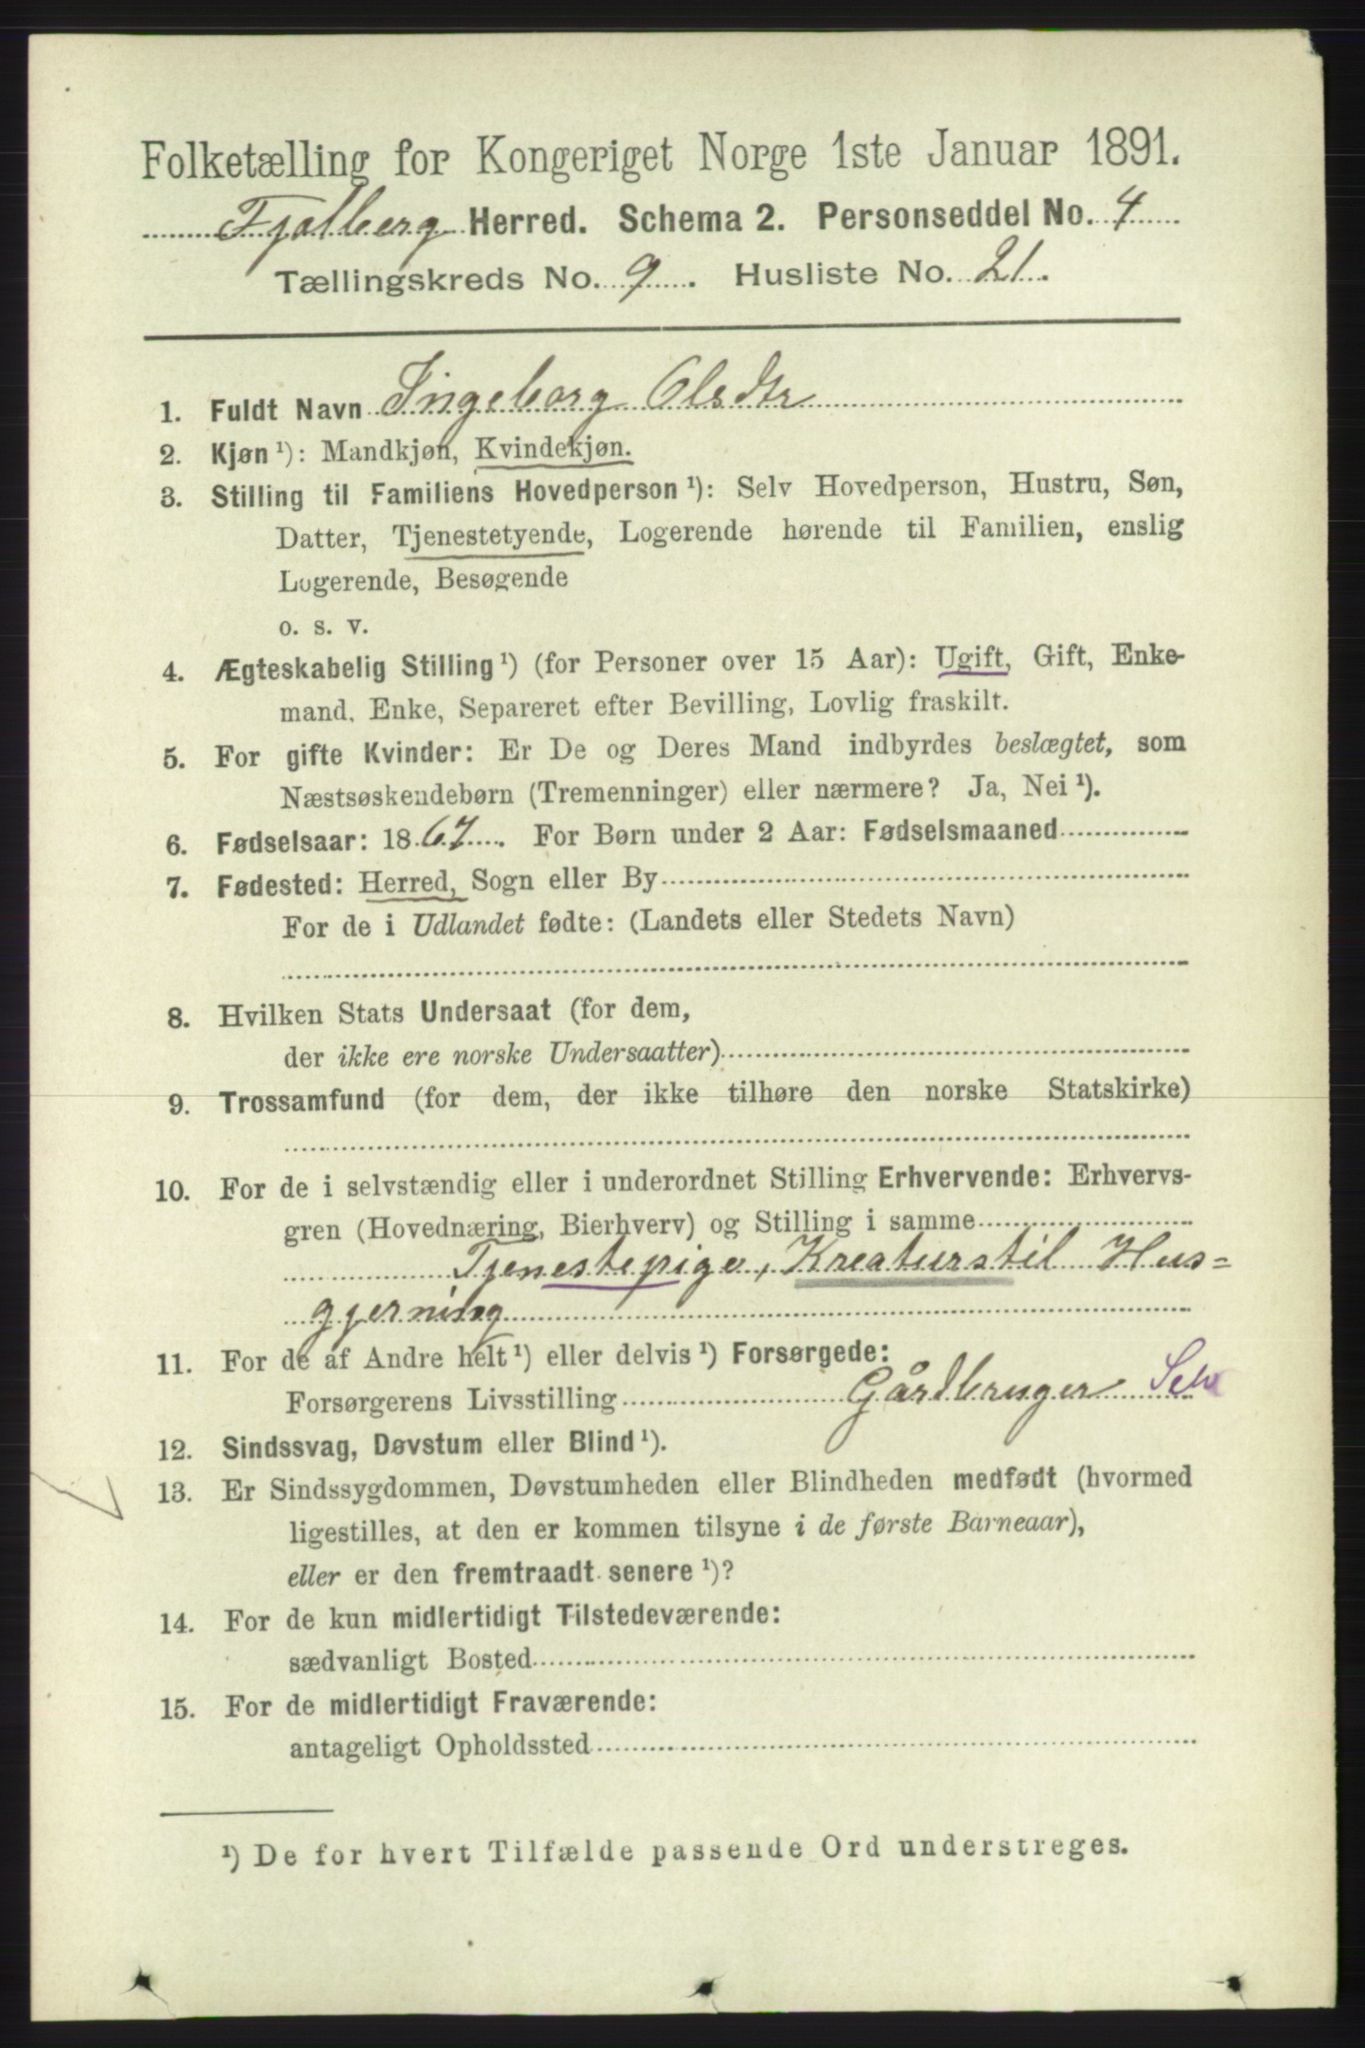 Folketælling for Kongeriget Norge 1ste Januar 1891.
Fjelberg Herred. Schema 2. Personseddel No. 4
Tællingskreds No. 9. Husliste No. 21.
1. Fuldt Navn Ingeborg Olsdtr
2. Kjøn ¹): Mandkjøn, Kvindekjøn.
3. Stilling til Familiens Hovedperson ¹): Selv Hovedperson, Hustru, Søn,
Datter, Tjenestetyende, Logerende hørende til Familien, enslig
Logerende, Besøgende
o. s. v.
4. Ægteskabelig Stilling ¹) (for Personer over 15 Aar): Ugift, Gift, Enke-
mand, Enke, Separeret efter Bevilling, Lovlig fraskilt.
5. For gifte Kvinder: Er De og Deres Mand indbyrdes beslægtet, som
Næstsøskendebørn (Tremenninger) eller nærmere? Ja, Nei ¹).
6. Fødselsaar: 1867. For Børn under 2 Aar: Fødselsmaaned
7. Fødested: Herred, Sogn eller By
For de i Udlandet fødte: (Landets eller Stedets Navn)
8. Hvilken Stats Undersaat (for dem,
der ikke ere norske Undersaatter)
9. Trossamfund (for dem, der ikke tilhøre den norske Statskirke)
10. For de i selvstændig eller i underordnet Stilling Erhvervende: Erhvervs-
gren (Hovednæring, Bierhverv) og Stilling i samme
Tjenestepige, Kreaturstil Hus-
gjerning
11. For de af Andre helt ¹) eller delvis ¹) Forsørgede:
Forsørgerens Livsstilling Gårdbruger Selv
12. Sindssvag, Døvstum eller Blind ¹).
13. Er Sindssygdommen, Døvstumheden eller Blindheden medfødt (hvormed
ligestilles, at den er kommen tilsyne i de første Barneaar),
eller er den fremtraadt senere ¹)?
14. For de kun midlertidigt Tilstedeværende:
sædvanligt Bosted
15. For de midlertidigt Fraværende:
antageligt Opholdssted
¹) De for hvert Tilfælde passende Ord understreges.